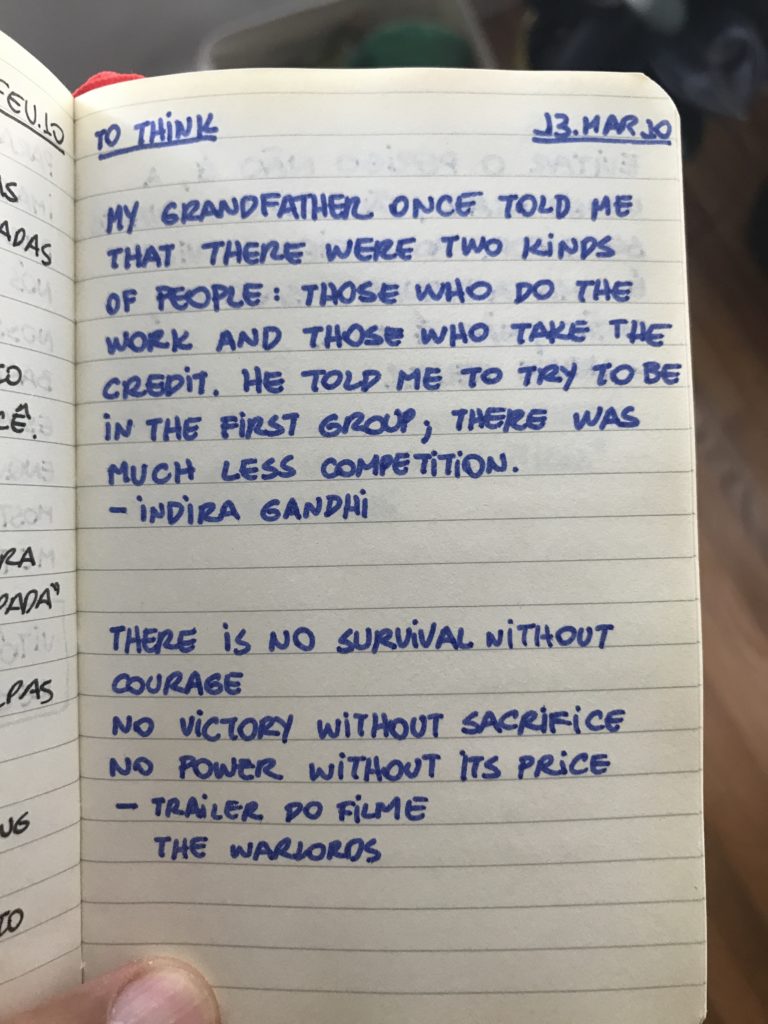 TO THINK 13.MAR.10
MY GRANDFATHER ONCE TOLD ME
THAT THERE WERE TWO KINDS
OF PEOPLE: THOSE WHO DO THE
WORK AND THOSE WHO TAKE THE
CREDIT. HE TOLD ME TO TRY TO BE
IN THE FIRST GROUP; THERE WAS
MUCH LESS COMPETITION.
- INDIRA GANDHI
THERE IS NO SURVIVAL WITHOUT
COURAGE
NO VICTORY WITHOUT SACRIFICE
NO POWER WITHOUT ITS PRICE
- TRAILER DO FILME
THE WARLORDS